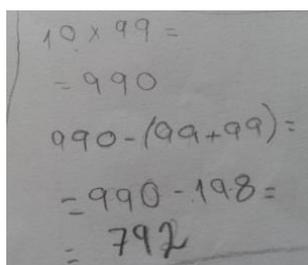 10 × 99 =
= 990
990 - (99 + 99) =
= 990 - 198 =
= 792